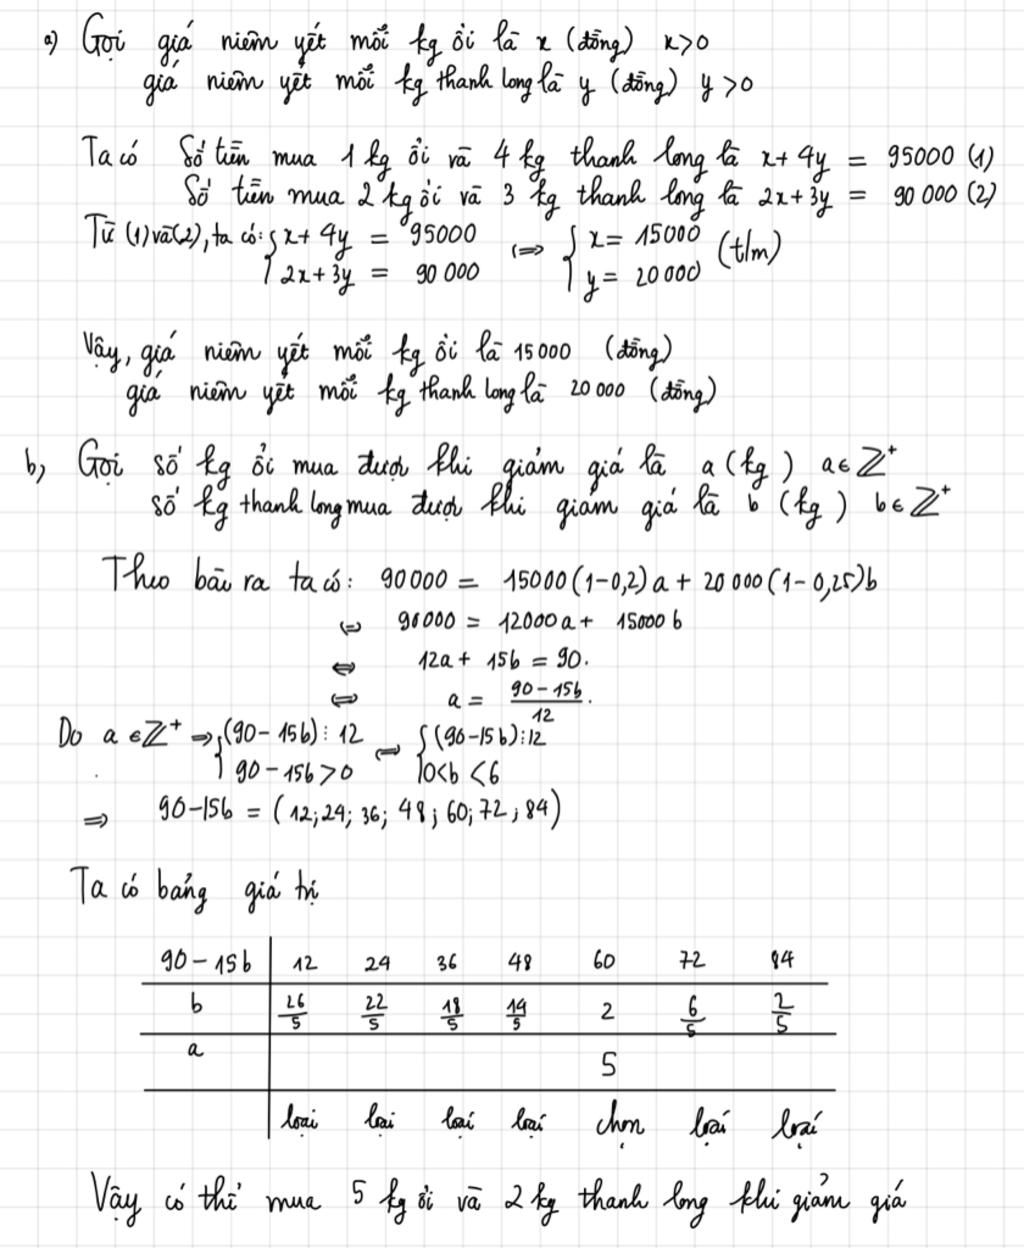 a) Gọi giá niêm yết mỗi kg ổi là x (đồng) x>0
giá niêm yết mỗi kg thanh long là y (đồng) y>0
Ta có Số tiền mua 1 kg ổi và 4 kg thanh long là x+4y = 95000 (1)
Số tiền mua 2 kg ổi và 3 kg thanh long là 2x+3y = 90 000 (2)
Từ (1) và (2), ta có: { x+4y = 95000 ⇔ { x = 15000 (t/m)
2x+3y = 90 000 y = 20 000
Vậy, giá niêm yết mỗi kg ổi là 15 000 (đồng)
giá niêm yết mỗi kg thanh long là 20 000 (đồng)
b, Gọi số kg ổi mua được khi giảm giá là a (kg) a∈ℤ⁺
số kg thanh long mua được khi giảm giá là b (kg) b∈ℤ⁺
Theo bài ra ta có: 90 000 = 15000(1-0,2)a + 20 000(1-0,25)b
⇔ 90000 = 12000a + 15000b
⇔ 12a + 15b = 90.
⇔ a = (90-15b)/12.
Do a∈ℤ⁺ ⇒ { (90-15b)⋮12 ⇔ { (90-15b)⋮12
90-15b>0 0<b<6
⇒ 90-15b = (12; 24; 36; 48; 60; 72; 84)
Ta có bảng giá trị
90-15b 12 24 36 48 60 72 84
b 26/5 22/5 18/5 14/5 2 6/5 2/5
a 5
loại loại loại loại chọn loại loại
Vậy có thể mua 5 kg ổi và 2 kg thanh long khi giảm giá